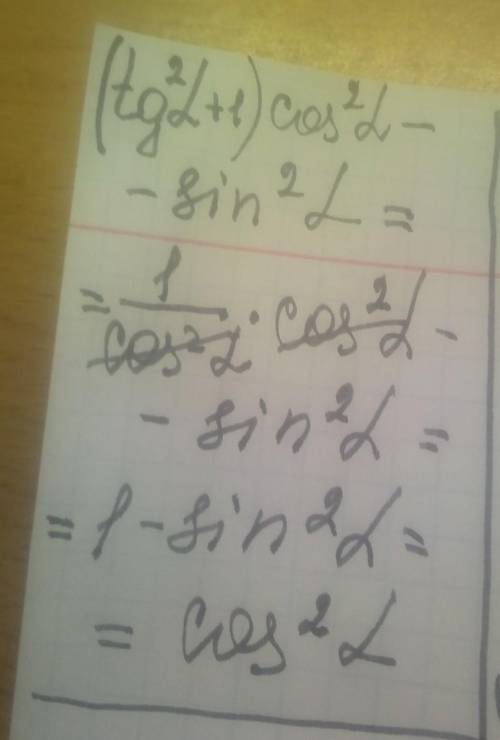 (tg²α+1) cos²α −
− sin²α =
= 1/cos²α · cos²α −
− sin²α =
= 1 − sin²α =
= cos²α